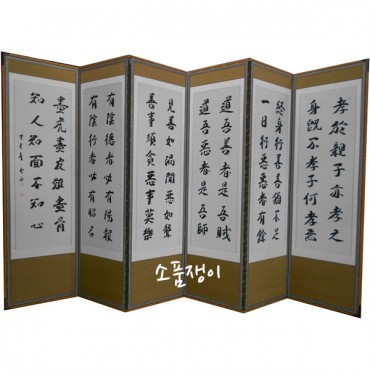 孝於親子亦孝之
身旣不孝子何孝焉
終身行善善猶不足
一日行惡惡自有餘
道吾善者是吾賊
道吾惡者是吾師
見善如渴聞惡如聾
善事須貪惡事莫樂
有陰德者必有陽報
有陰行者必有昭名
畫虎畫皮難畫骨
知人知面不知心
소품쟁이